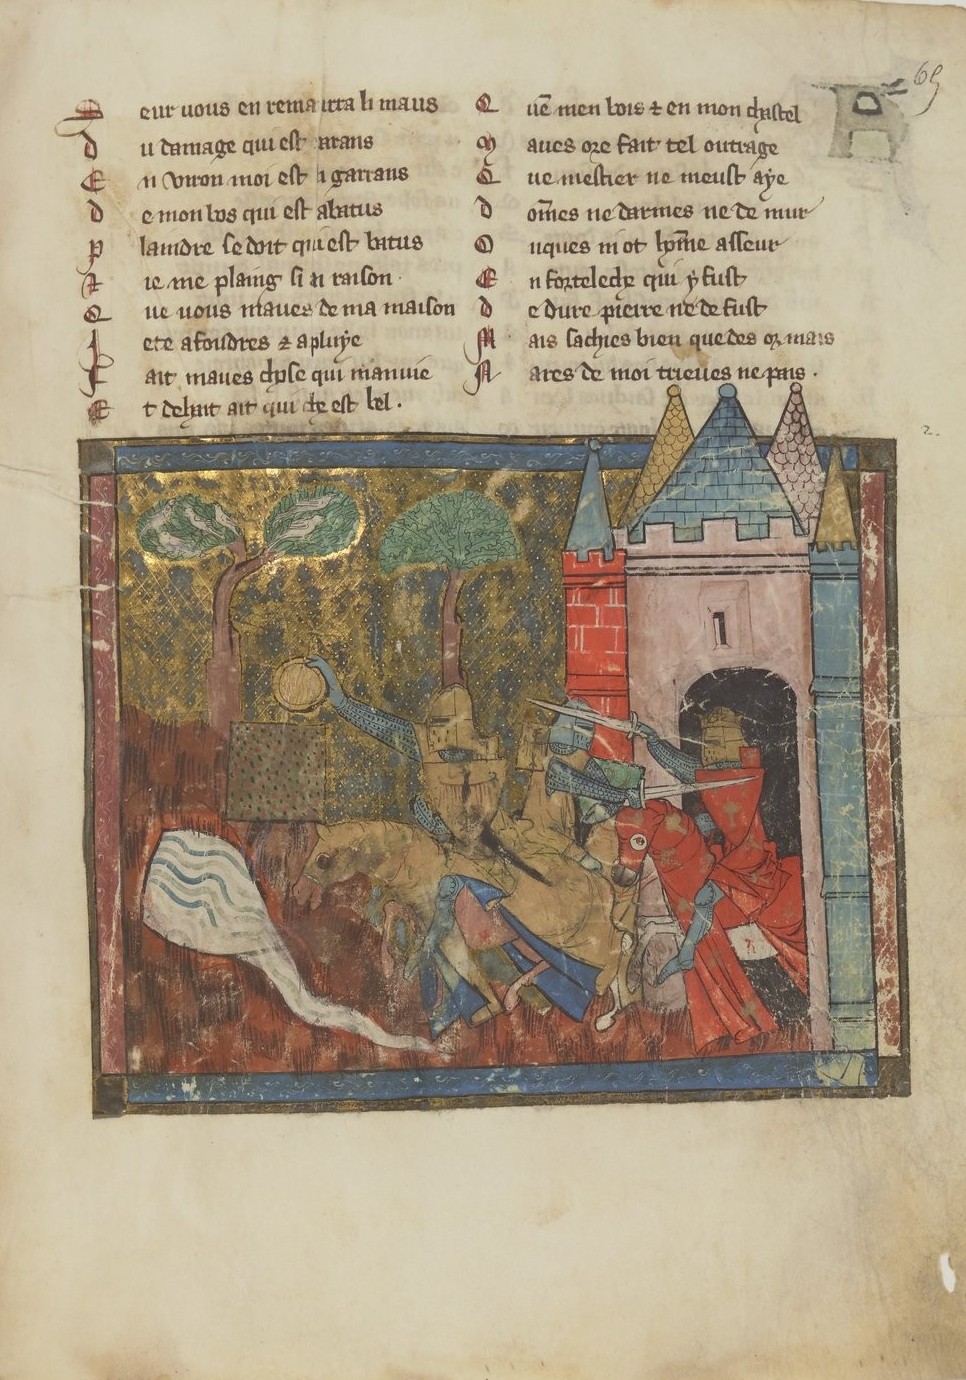 65
eur vous en remaitra li maus
D u damage qui est parans
E n viron moi est li garrans
D e mon bos qui est abatus
P laindre se doit qui est batus
E ie me plaing si ai raison
Q ue vous maues de ma maison
I ete a foudres & a pluye
F ait maues chose qui manuie
E t dehait ait qui che est bel.
Q uē men bois & en mon chastel
M aues ore fait tel outrage
Q ue mestier ne meust aÿe
D om̄es ne darmes ne de mur
O nques ni ot hom̄e asseur
E n forteleche qui ÿ fust
D e dure pierre ne de fust
M ais sachies bien que des or mais
N ares de moi trieues ne pais.
2.